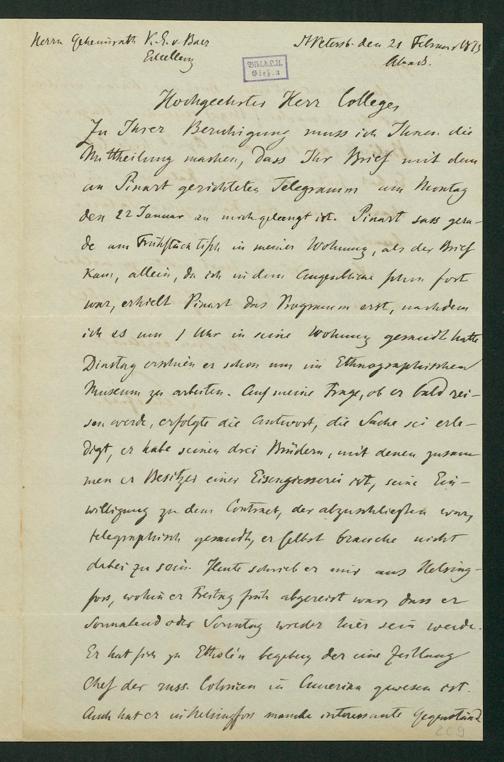 Herrn Geheimrath K. E. v. Baer
Excellenz
St Petersb. den 21 Februar 1873
Abends.
Hochgeehrter Herr College,
Zu Ihrer Beruhigung muss ich Ihnen die
Mittheilung machen, dass Ihr Brief mit dem
an Pinart gerichteten Telegramm am Montag
den 22 Januar an mich gelangt ist. Pinart sass gera-
de am Frühstücktisch in meiner Wohnung, als der Brief
kam, allein, da ich in dem Augenblicke schon fort
war, erhielt Pinart das Programm erst, nachdem
ich es um 1 Uhr in seine Wohnung gesandt hatte
Dinstag erschien er schon um im Ethnographischen
Museum zu arbeiten. Auf meine Frage, ob er bald rei-
sen werde, erfolgte die Antwort, die Sache sei erle-
digt, er habe seinen drei Brüdern, mit denen zusam
men er Besitzer einer Eisengiesserei ist, seine Ein-
willigung zu dem Contract, der abzuschliessen war,
telegraphisch gesandt, er selbst brauche nicht
dabei zu sein. Heute schrieb er mir aus Helsing-
fors, wohin er Freitag früh abgereist war, dass er
Sonnabend oder Sonntag wieder hier sein werde.
Er hat sich zu Etholén begeben der eine Zeitlang
Chef der russ. Colonien in America gewesen ist.
Auch hat er in Helsingfors manche interessante Gegenstände
209